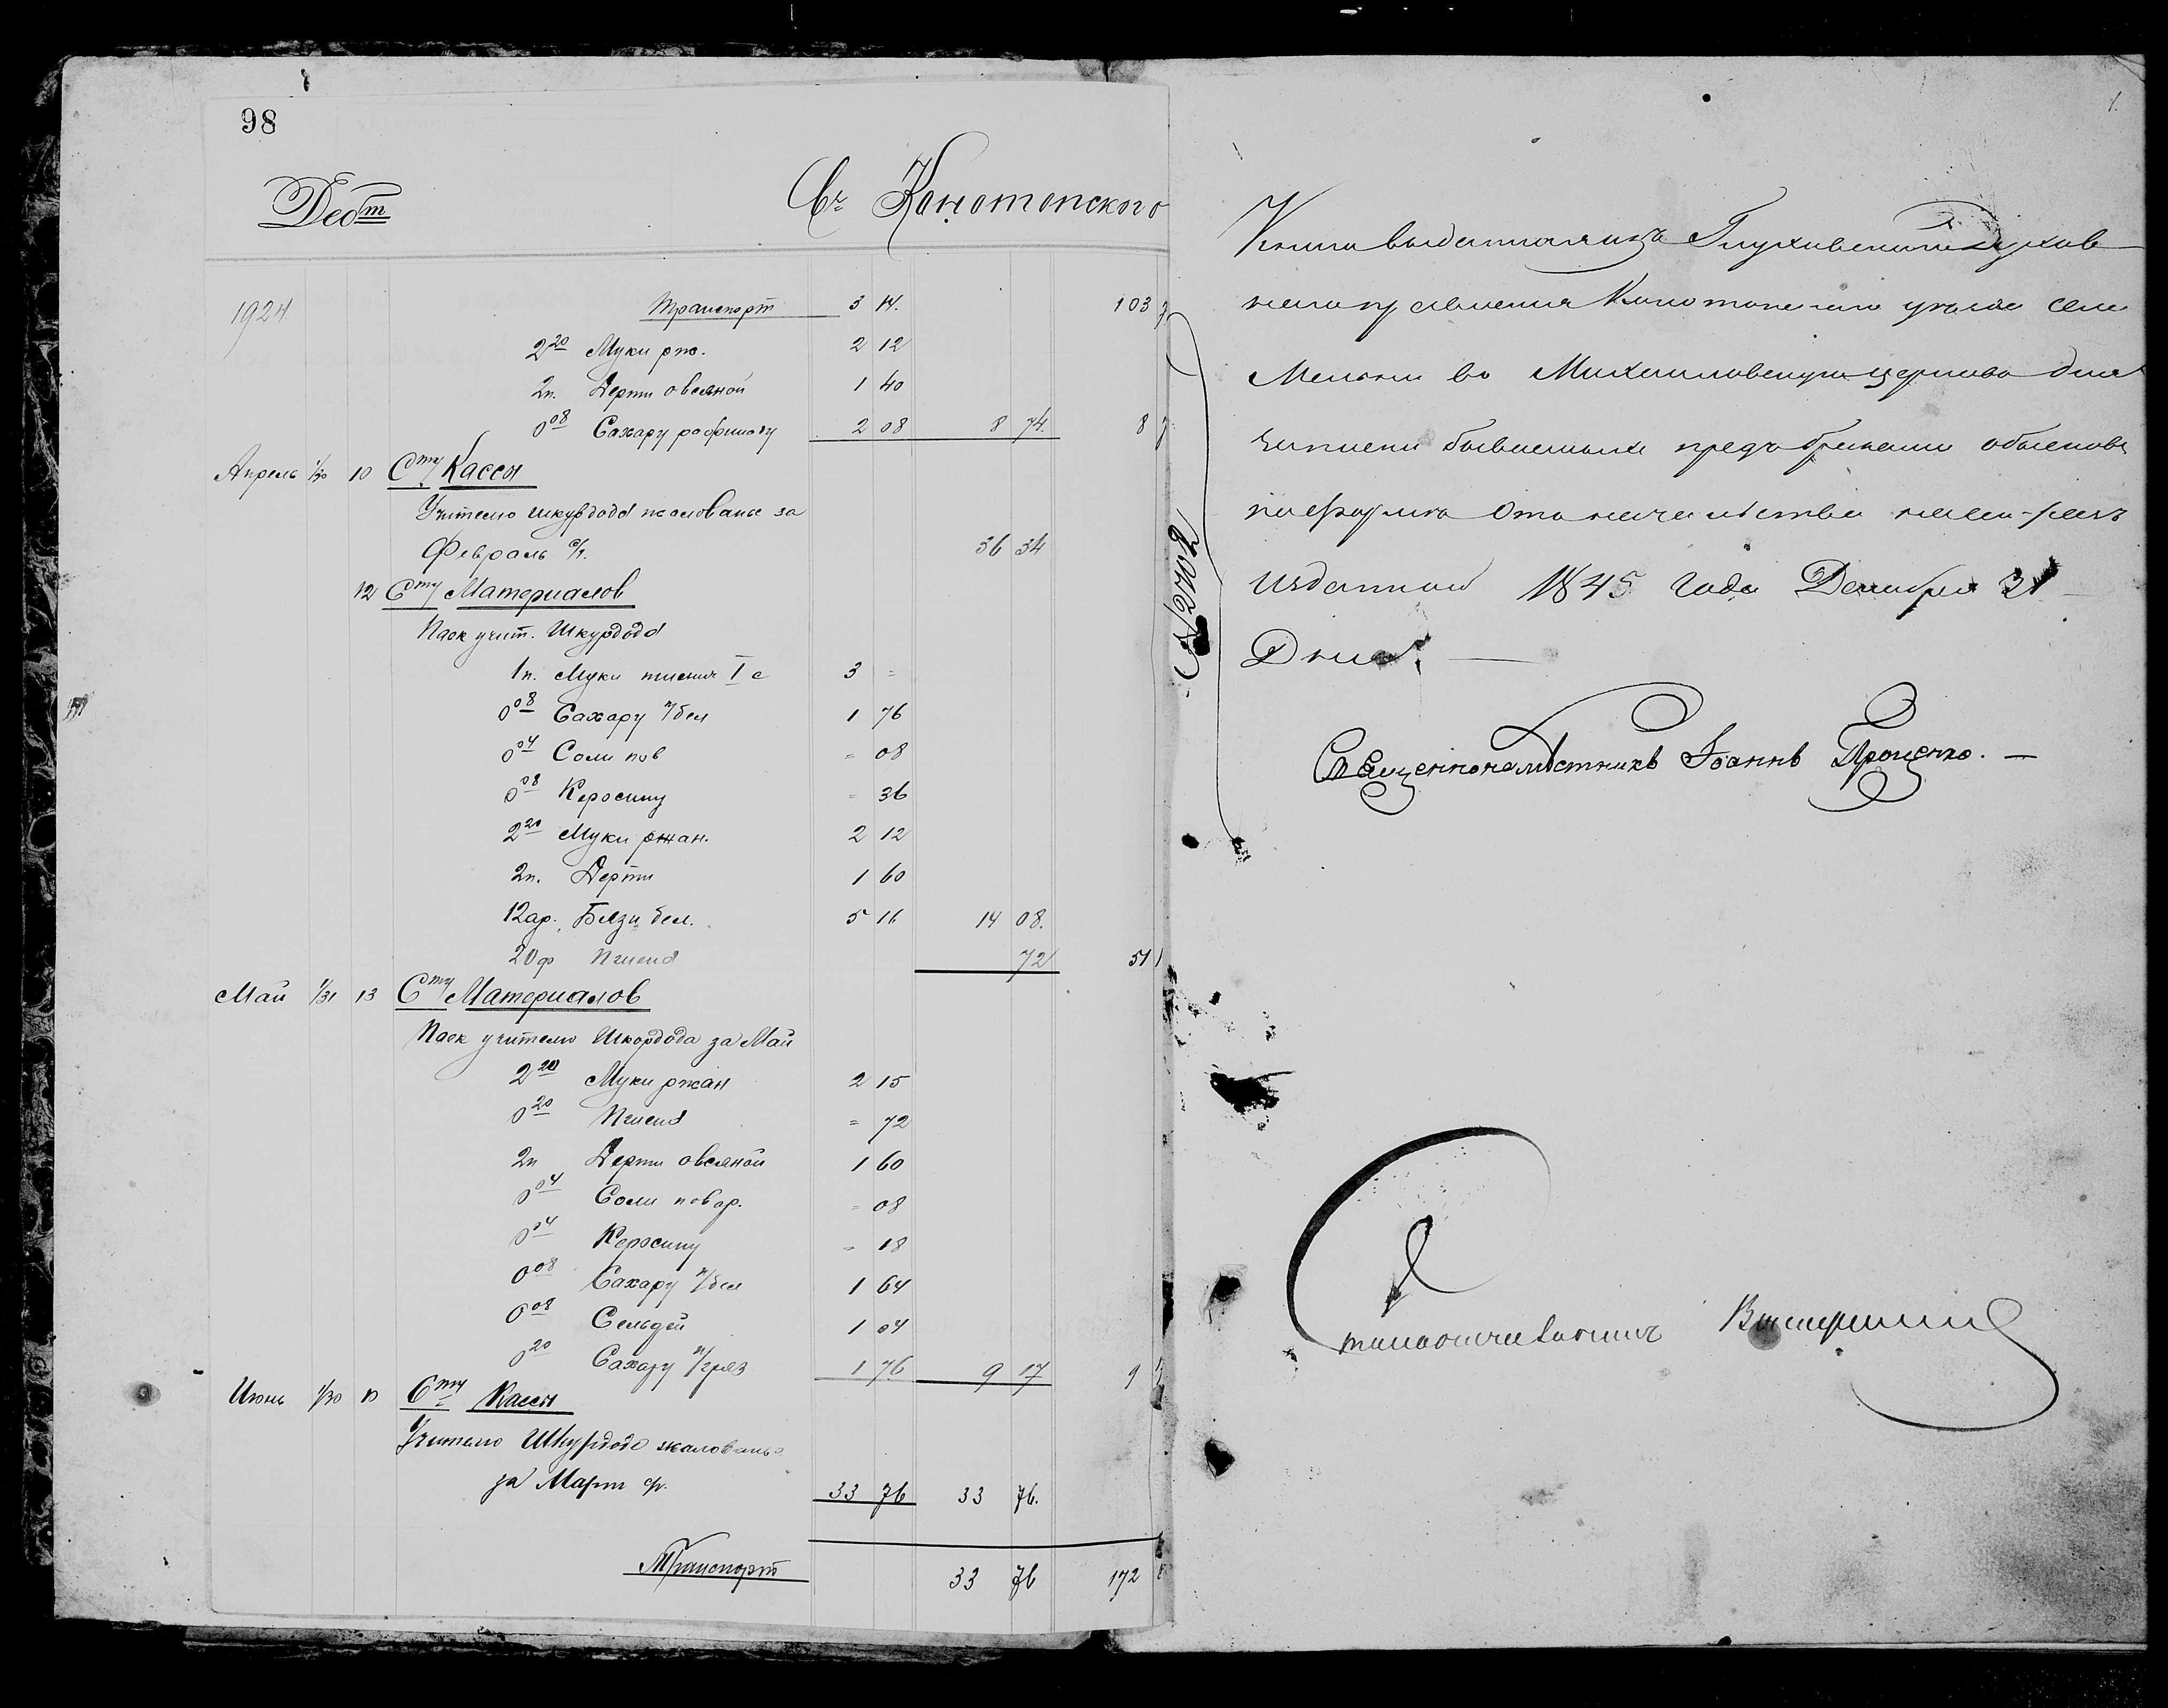 98
Дебт
Сч Конотопского
1924
Транспорт 3 14. 103
2 20 Муки рж. 2 12
2п. Дерти овсяной 1 40
0 08 Сахару рафинаду 2 08 8 74. 8
Апрель 1/30 10 Сту Кассы
Учителю Шкурдода жалованье за
Февраль с/г. 36 34
12 Сту Материалов
Паек учит. Шкурдода
1п. Муки пшенич I с 3 =
0 08 Сахару п/бел 1 76
0 04 Соли пов = 08
0 08 Керосину = 36
2 20 Муки ржан. 2 12
2п. Дерти 1 60
12ар. Бязи бел. 5 16 14 08.
20ф Пшена 72 51
Май 1/31 13 Сту Материалов
Паек учителю Шкордода за Май
2 20 Муки ржан 2 15
0 20 Пшена = 72
2п Дерти овсяной 1 60
0 04 Соли повар. = 08
0 04 Керосину = 18
0 08 Сахару п/бел 1 64
0 08 Сельдей 1 04
0 20 Сахару п/гряз 1 76 9 17 9
Июнь 1/30 10 Сту Кассы
Учителю Шкурдода жалованье
за Март с/г. 33 76 33 76.
Транспорт 33 76 172
1.
Книга выданная изъ Глуховскаго Духов
наго правления Конотопскаго уезда села
Мельни во Михайловскую церковь для
записи бываемыхъ предъ браками обысковъ
по форме Отъ начальства
изданной 1845 года Декабря 31
Дня.
Священнонаместникъ Іоаннъ Проценко.